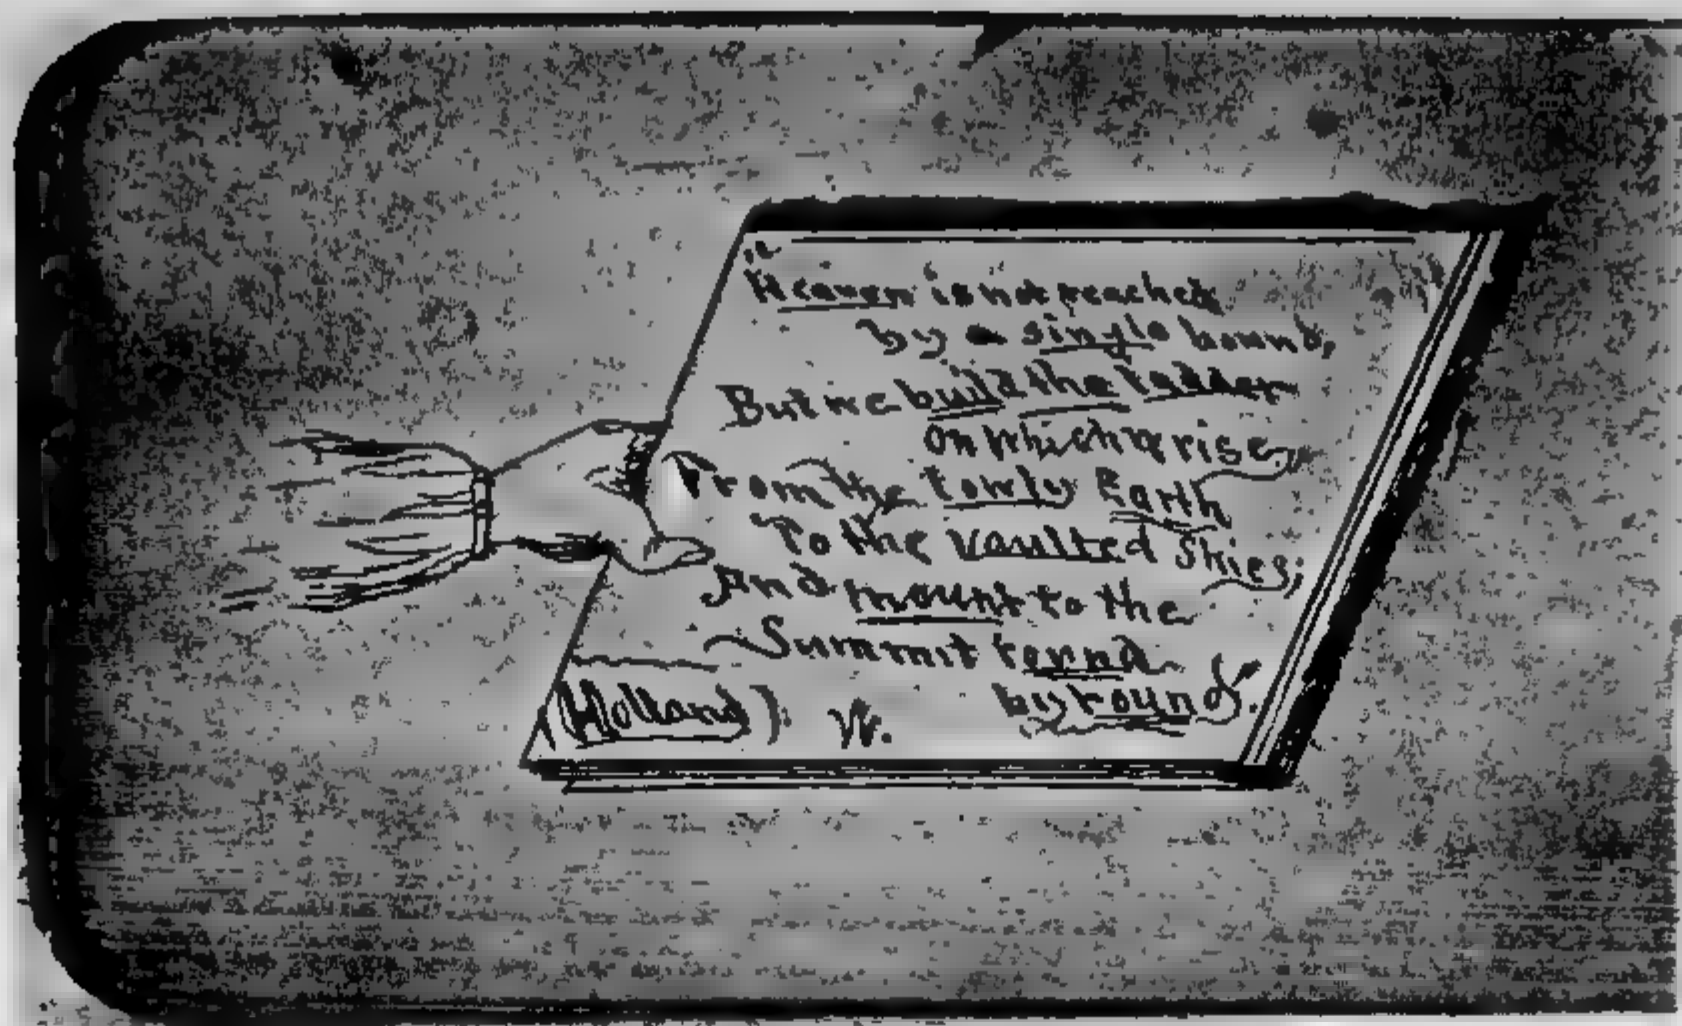 "Heaven is not reached
by a single bound,
But we build the ladder
on which we rise
From the lowly Earth
To the vaulted Skies;
And mount to the
Summit round
by round".
(Holland). W.